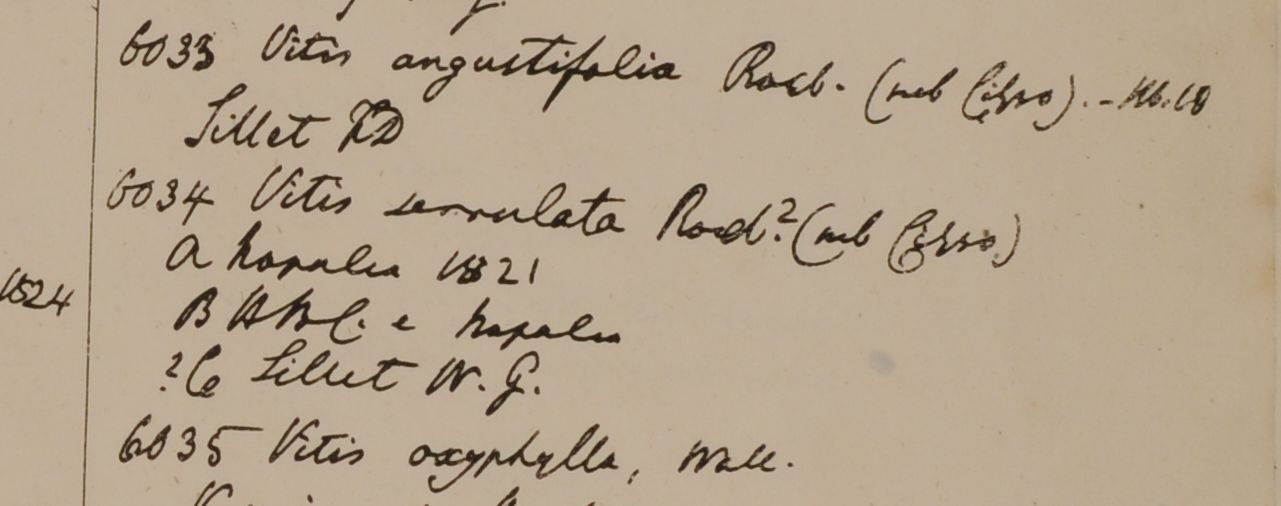 6033 Vitis angustifolia Roxb. (sub Cisso).
Sillet FD
6034 Vitis serrulata Roxb.? (sub Cisso)
A Napalia 1821
1824
B HBC. e Napalia
?C Sillet W. G.
6035 Vitis oxyphylla, Wall.